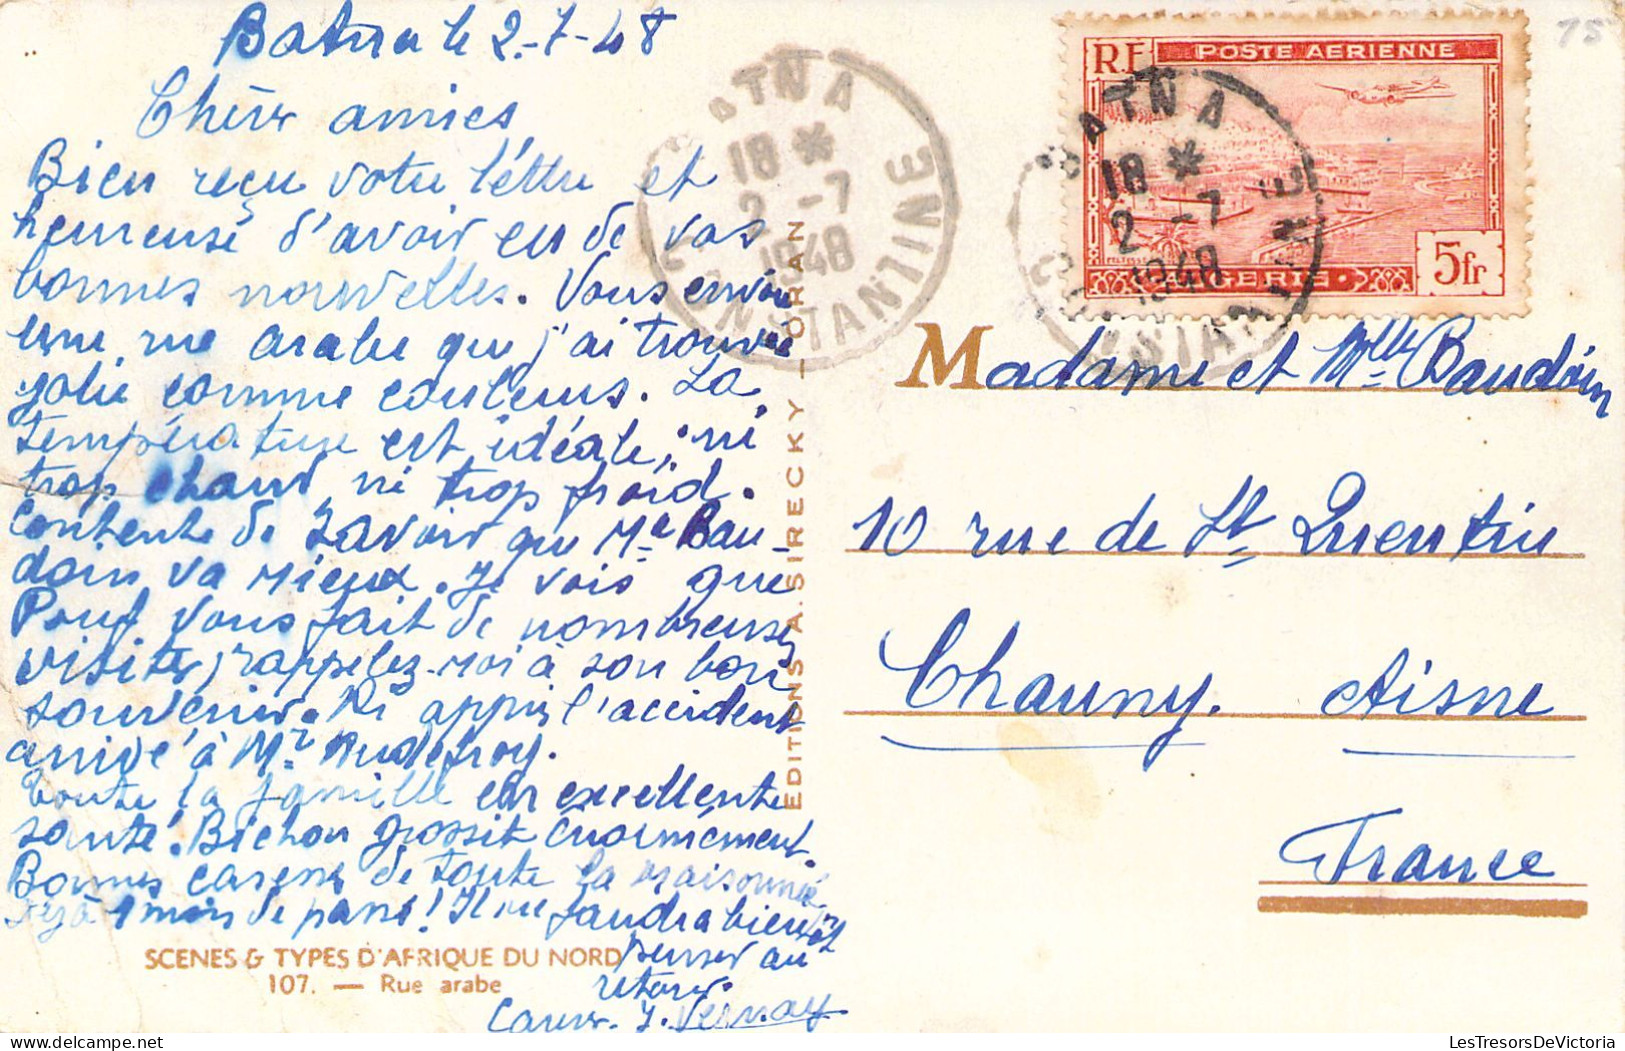 Batna le 2-7-48
Chères amies,
Bien reçu votre léttre et
heureuse d'avoir eu de vos
bonnes nouvelles. Vous envoie
une rue arabe que j'ai trouvée
jolie comme couleurs. La
température est idéale, ni
trop chaud ni trop froid.
Contente de savoir que Me Bau-
doin va mieux. Je vois que
Pouf vous fait de nombreuses
visites, rappelez-moi à son bon
souvenir. Ai appris l'accident
arrivé à Mr Audefroy.
Toute la famille en excellente
santé. Bichon grossit énormément.
Bonnes caresses de toute la maisonnée
Déjà 1 mois de passé! Il me faudra bientôt
penser au
retour.
J. Vernay
SCENES & TYPES D'AFRIQUE DU NORD
107. — Rue arabe
EDITIONS A. SIRECKY — ORAN
BATNA
18 *
2 -7
1948
CONSTANTINE
RF POSTE AERIENNE
ALGERIE
5fr
BATNA
18 *
2 -7
1948
CONSTANTINE
75
Madame et Mlle Baudoin
10 rue de St Quentin
Chauny. Aisne
France
www.LesTresorsDeVictoria.com